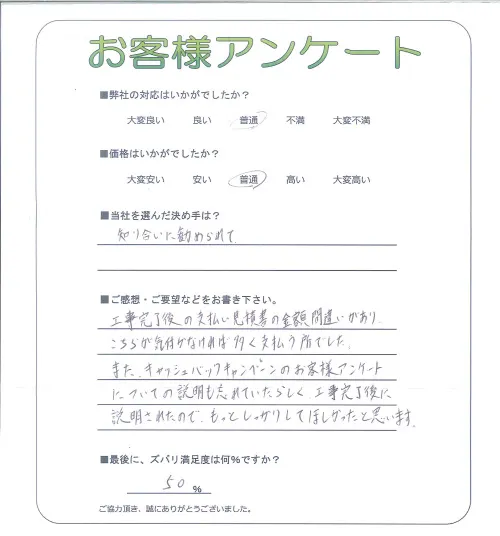 お客様アンケート
■弊社の対応はいかがでしたか？
大変良い 良い 普通 不満 大変不満
■価格はいかがでしたか？
大変安い 安い 普通 高い 大変高い
■当社を選んだ決め手は？
知り合いに勧められて
■ご感想・ご要望などをお書き下さい。
工事完了後の支払い見積書の金額間違いがあり、
こちらが気付かなければ多く支払う所でした。
また、キャッシュバックキャンペーンのお客様アンケート
についての説明も忘れていたらしく、工事完了後に
説明されたので、もっとしっかりしてほしかったと思います。
■最後に、ズバリ満足度は何%ですか？
50 %
ご協力頂き、誠にありがとうございました。